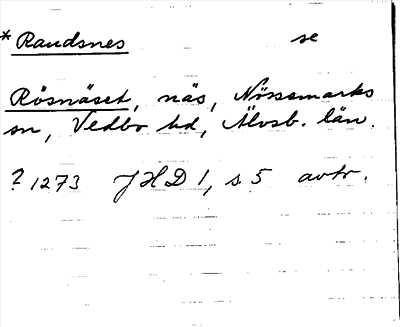 *Raudsnes se
Rösnäset, näs, Nössemarks
sn, Vedbo hd, Älvsb. län.
? 1273 JHD 1, s. 5 avtr.